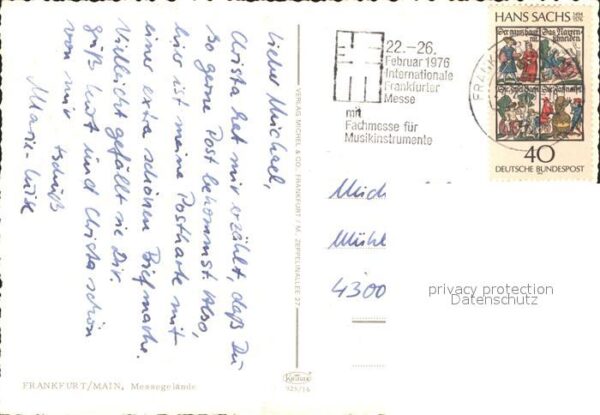 Lieber Michael,
Christa hat mir erzählt, daß Du
so gerne Post bekommst. Also,
hier ist meine Postkarte mit
einer extra schönen Briefmarke.
Vielleicht gefällt sie Dir.
Grüß Kurt und Christa schön
von mir tschüß
Marie-Luise
FRANKFURT/MAIN, Messegelände
VERLAG MICHEL & CO. FRANKFURT / M. ZEPPELINALLEE 27
Krüger
925/16
22.-26.
Februar 1976
Internationale
Frankfurter
Messe
mit
Fachmesse für
Musikinstrumente
FRANK
HANS SACHS 1494 1576
40
DEUTSCHE BUNDESPOST
Mich
Mühl
4300
privacy protection
Datenschutz